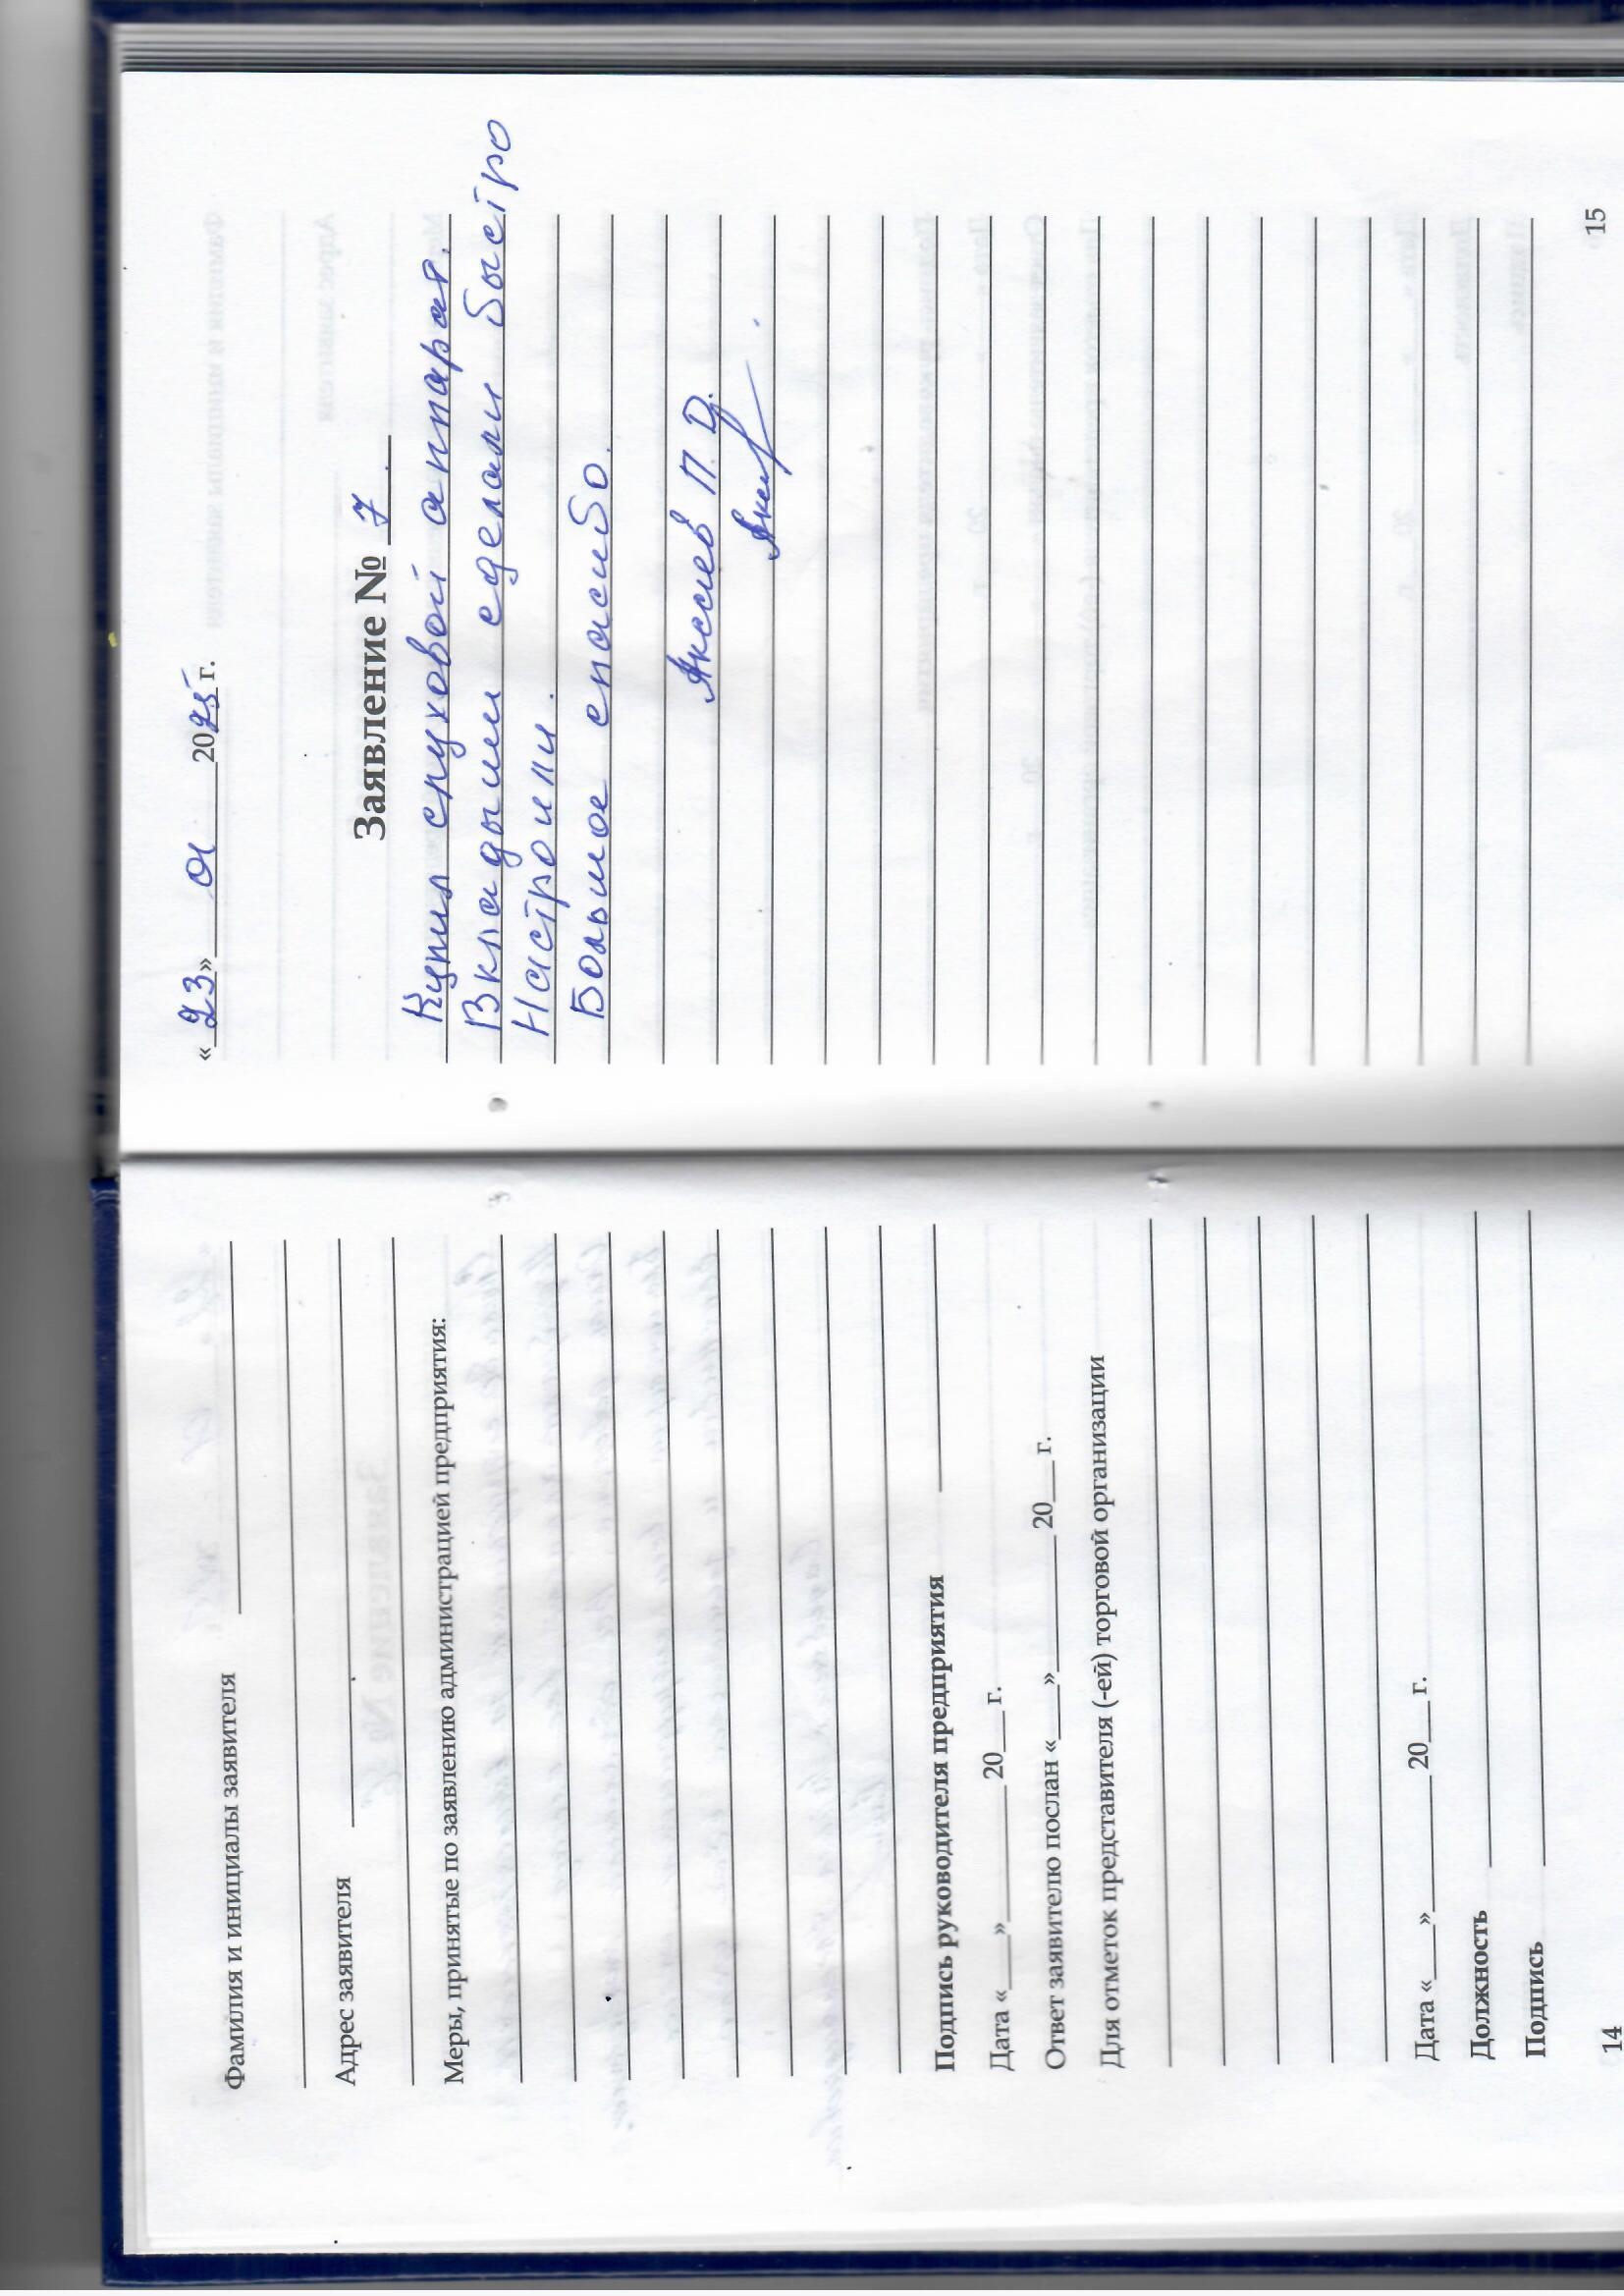 Фамилия и инициалы заявителя
Адрес заявителя
Меры, принятые по заявлению администрацией предприятия:
Подпись руководителя предприятия
Дата «___»________20___г.
Ответ заявителю послан «___»________20___г.
Для отметок представителя (-ей) торговой организации
Дата «___»________20___г.
Должность
Подпись
14
«23» 01 2025 г.
Заявление № 7
Купил слуховой аппарат.
Вкладыши сделали быстро
Настроили.
Большое спасибо.
П. Д.
15